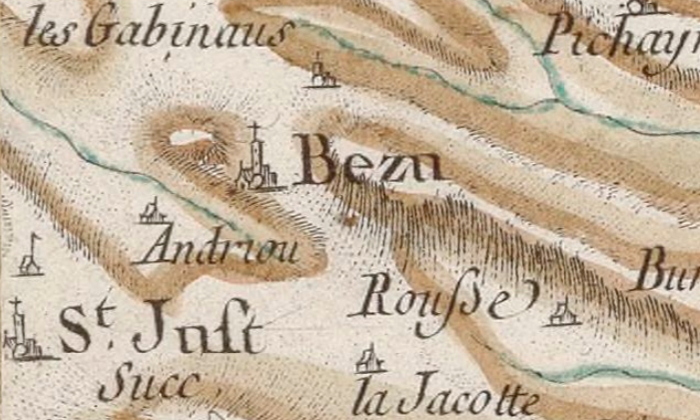 les Gabinaus
Pichay
Bezu
Andriou
Bu
Rousse
St. Just
Succ
la Jacotte